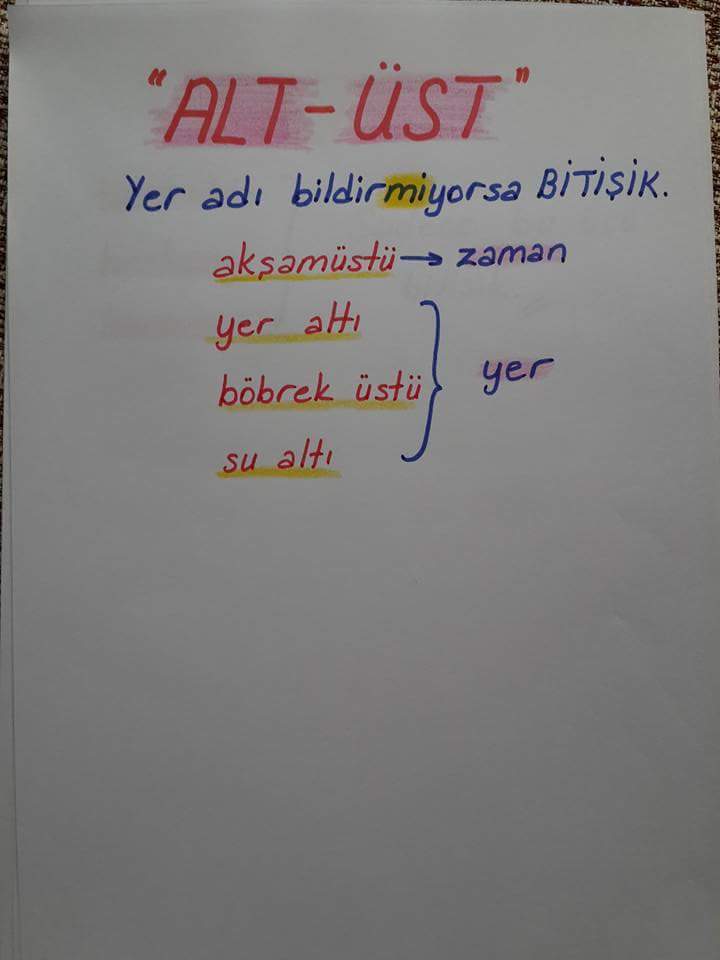 "ALT-ÜST"
Yer adı bildirmiyorsa BİTİŞİK.
akşamüstü → zaman
yer altı
böbrek üstü
yer
su altı